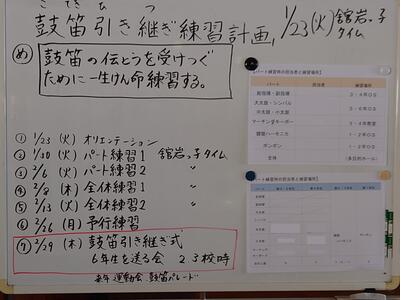 こ てき ひ つ
鼓笛引き継ぎ練習計画 1/23(火) 舘岩っ子タイム
め 鼓笛の伝とうを受けつぐ
ために一生けん命練習する。
① 1/23 (火) オリエンテーション
② 1/30 (火) パート練習1 舘岩っ子タイム
③ 2/6 (火) パート練習2 〃
④ 2/8 (木) 全体練習1 〃
⑤ 2/13 (火) 全体練習2 〃
⑥ 2/26 (月) 予行練習
⑦ 2/29 (木) 鼓笛引き継ぎ式
6年生を送る会 2 3校時
来年 運動会 鼓笛パレード
【パート練習時の担当者と練習場所】
パート 担当者 練習場所
総指揮・副指揮 3・4年OS
大太鼓・シンバル 5・6年OS
中太鼓・小太鼓
マーチングキーボード
鍵盤ハーモニカ 1・2年OS
ポンポン 1・2年OS
全体 (多目的ホール)